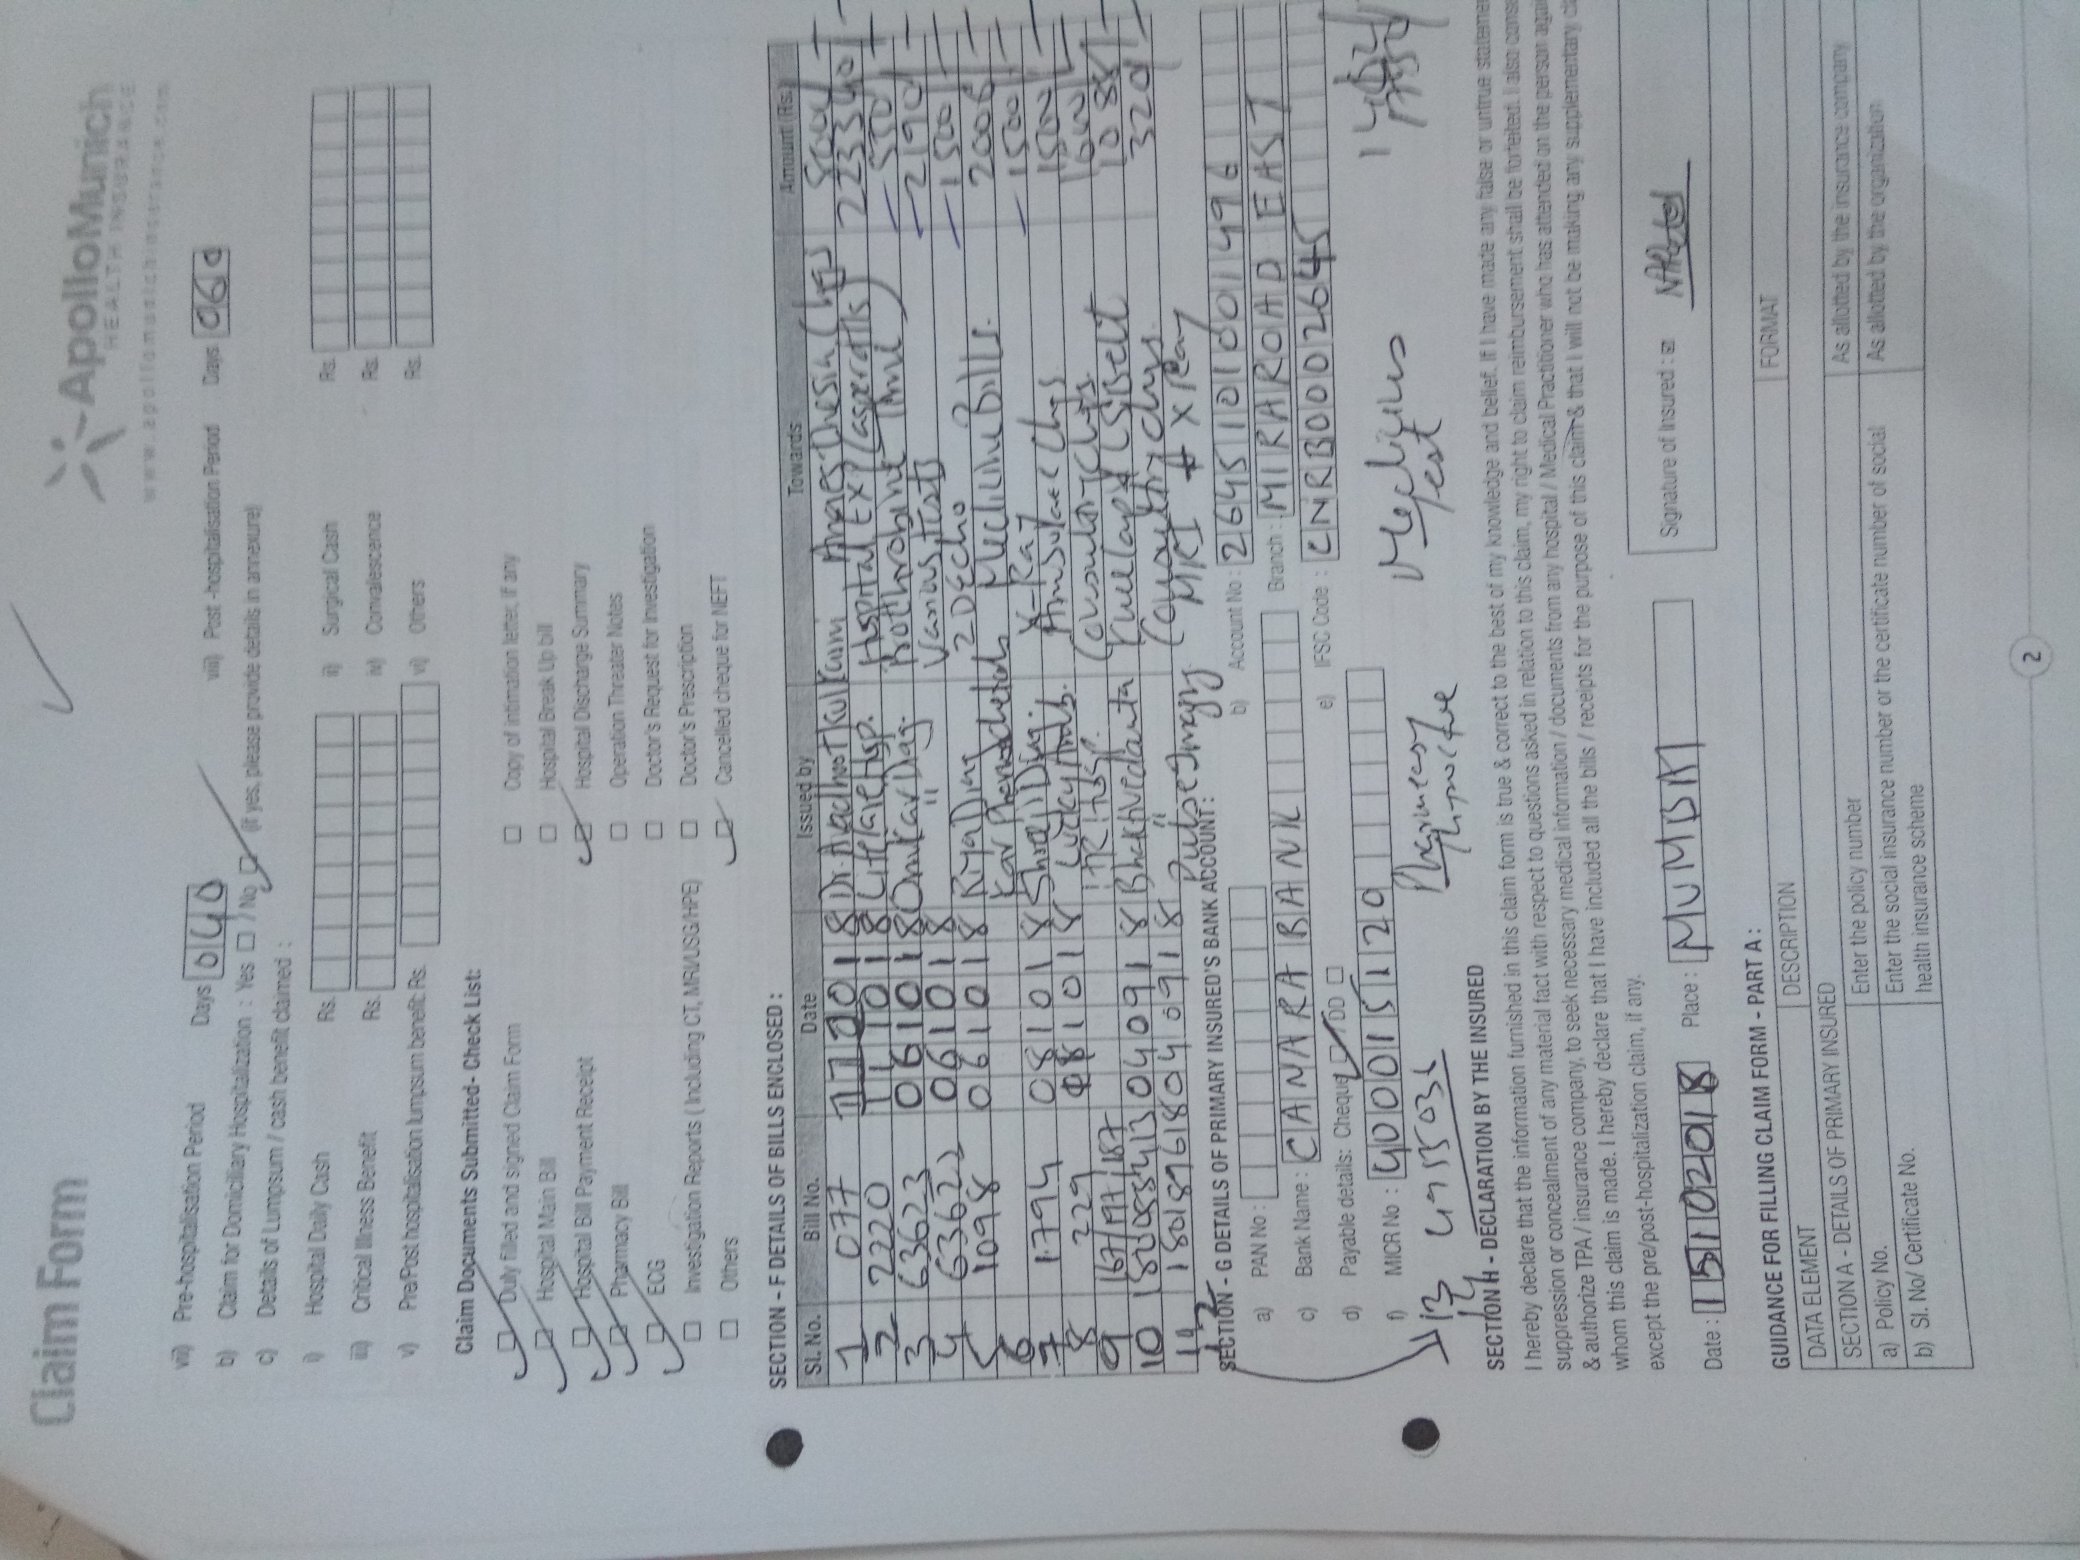 Claim Form
ApolloMunich
HEALTH INSURANCE
www.apollomunichinsurance.com
vii) Pre-hospitalisation Period Days 040 viii) Post-hospitalisation Period Days 060
b) Claim for Domiciliary Hospitalization : Yes / No (If yes, please provide details in annexure)
c) Details of Lumpsum / cash benefit claimed :
i) Hospital Daily Cash Rs. ii) Surgical Cash Rs.
iii) Critical Illness Benefit Rs. iv) Convalescence Rs.
v) Pre/Post hospitalisation lumpsum benefit: Rs. vi) Others Rs.
Claim Documents Submitted- Check List:
Duly filled and signed Claim Form Copy of intimation letter, if any
Hospital Main Bill Hospital Break Up bill
Hospital Bill Payment Receipt Hospital Discharge Summary
Pharmacy Bill Operation Theater Notes
ECG Doctor's Request for Investigation
Investigation Reports ( Including CT, MRI/USG/HPE) Doctor's Prescription
Others Cancelled cheque for NEFT
SECTION - F DETAILS OF BILLS ENCLOSED :
Sl. No. Bill No. Date Issued by Towards Amount (Rs.)
1 077 Dr.
2 2220 Hosp. Hospital Exp 223340
3 63623 061018 Omkar Diag. 550
4 63622 061018 " Various tests 2190
5 1098 061018 Riya Diag 2 D Echo 1500
6 Medicine Bills. 2006
7 1794 081018 Shreeji Diag. X-Ray 1500
8 229 081018 Lucky Amb. Ambulance Chgs 1500
9 Hosp. Consulting Chgs.
10 040918 Bhaktivedanta 1085
11 040918 " 320
12 Pulse Imagry. MRI X Ray
SECTION - G DETAILS OF PRIMARY INSURED'S BANK ACCOUNT :
a) PAN No : b) Account No : 2645101001496
c) Bank Name : CANARA BANK Branch : MIRAROAD EAST
d) Payable details: Cheque / DD e) IFSC Code : CNRB0002645
f) MICR No : 400015129
13
14
Medicines
test
SECTION H - DECLARATION BY THE INSURED
I hereby declare that the information furnished in this claim form is true & correct to the best of my knowledge and belief. If I have made any false or untrue
suppression or concealment of any material fact with respect to questions asked in relation to this claim, my right to claim reimbursement shall be forfeited. I also
& authorize TPA / insurance company, to seek necessary medical information / documents from any hospital / Medical Practitioner who has attended on the person
whom this claim is made. I hereby declare that I have included all the bills / receipts for the purpose of this claim & that I will not be making any supplementary
except the pre/post-hospitalization claim, if any.
Date : 15102018 Place : MUMBAI Signature of Insured :
GUIDANCE FOR FILLING CLAIM FORM - PART A :
DATA ELEMENT DESCRIPTION FORMAT
SECTION A - DETAILS OF PRIMARY INSURED
a) Policy No. Enter the policy number As allotted by the insurance company
b) Sl. No/ Certificate No. Enter the social insurance number or the certificate number of social As allotted by the organization
health insurance scheme
2